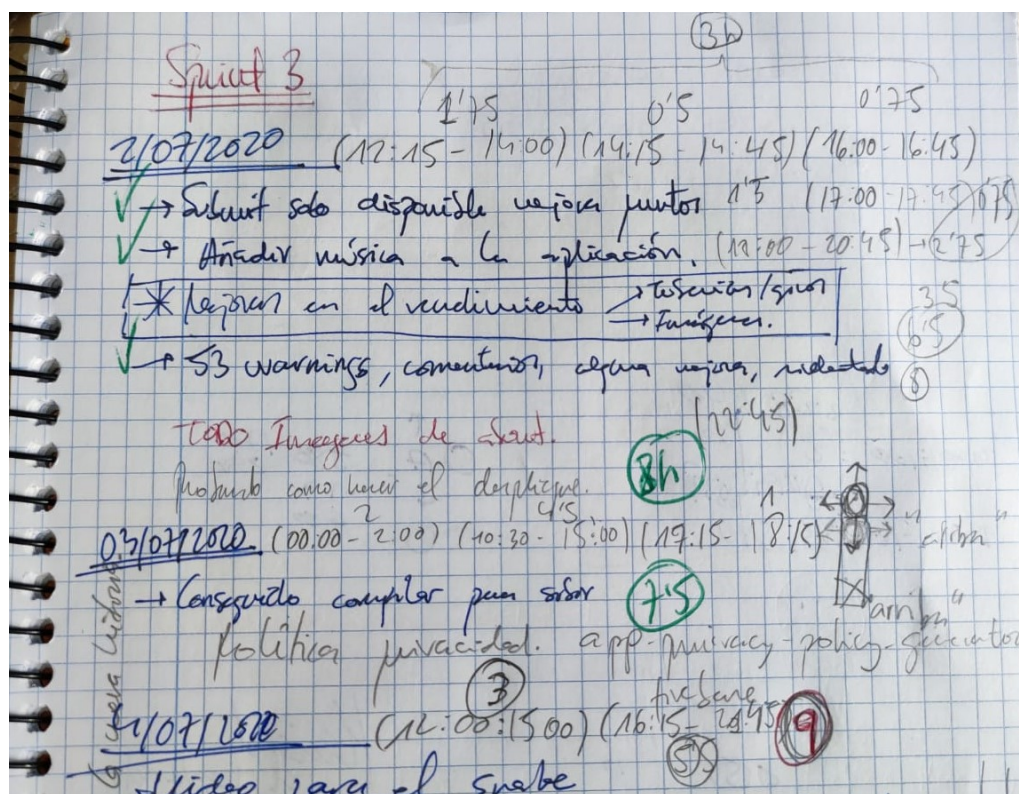 3h
Sprint 3
1'75 0'5 0'75
2/07/2020 (12:15 - 14:00) (14:15 - 14:45) (16:00 - 16:45)
→ Submit solo disponible mejora puntos 1'5 (17:00 - 17:45) 0'75
→ Añadir música a la aplicación. (18:00 - 20:45) → 2'75
* Mejoras en el rendimiento →
→ Imágenes.
3'5
6'5
→ 53 warnings, comentarios, alguna mejora, indentado
8
(22:45)
TODO Imágenes de
Probando como hacer el despliegue. 8h
2 4'5 1
03/07/2020 (00:00 - 2:00) (10:30 - 15:00) (17:15 - 18:15)
"arriba"
→ Conseguido compilar para subir 7'5
"arriba"
Política privacidad. app-privacy-policy-generator
3 firebase
4/07/2020 (12:00:15:00) (16:15 - 9
5'5
Video para el